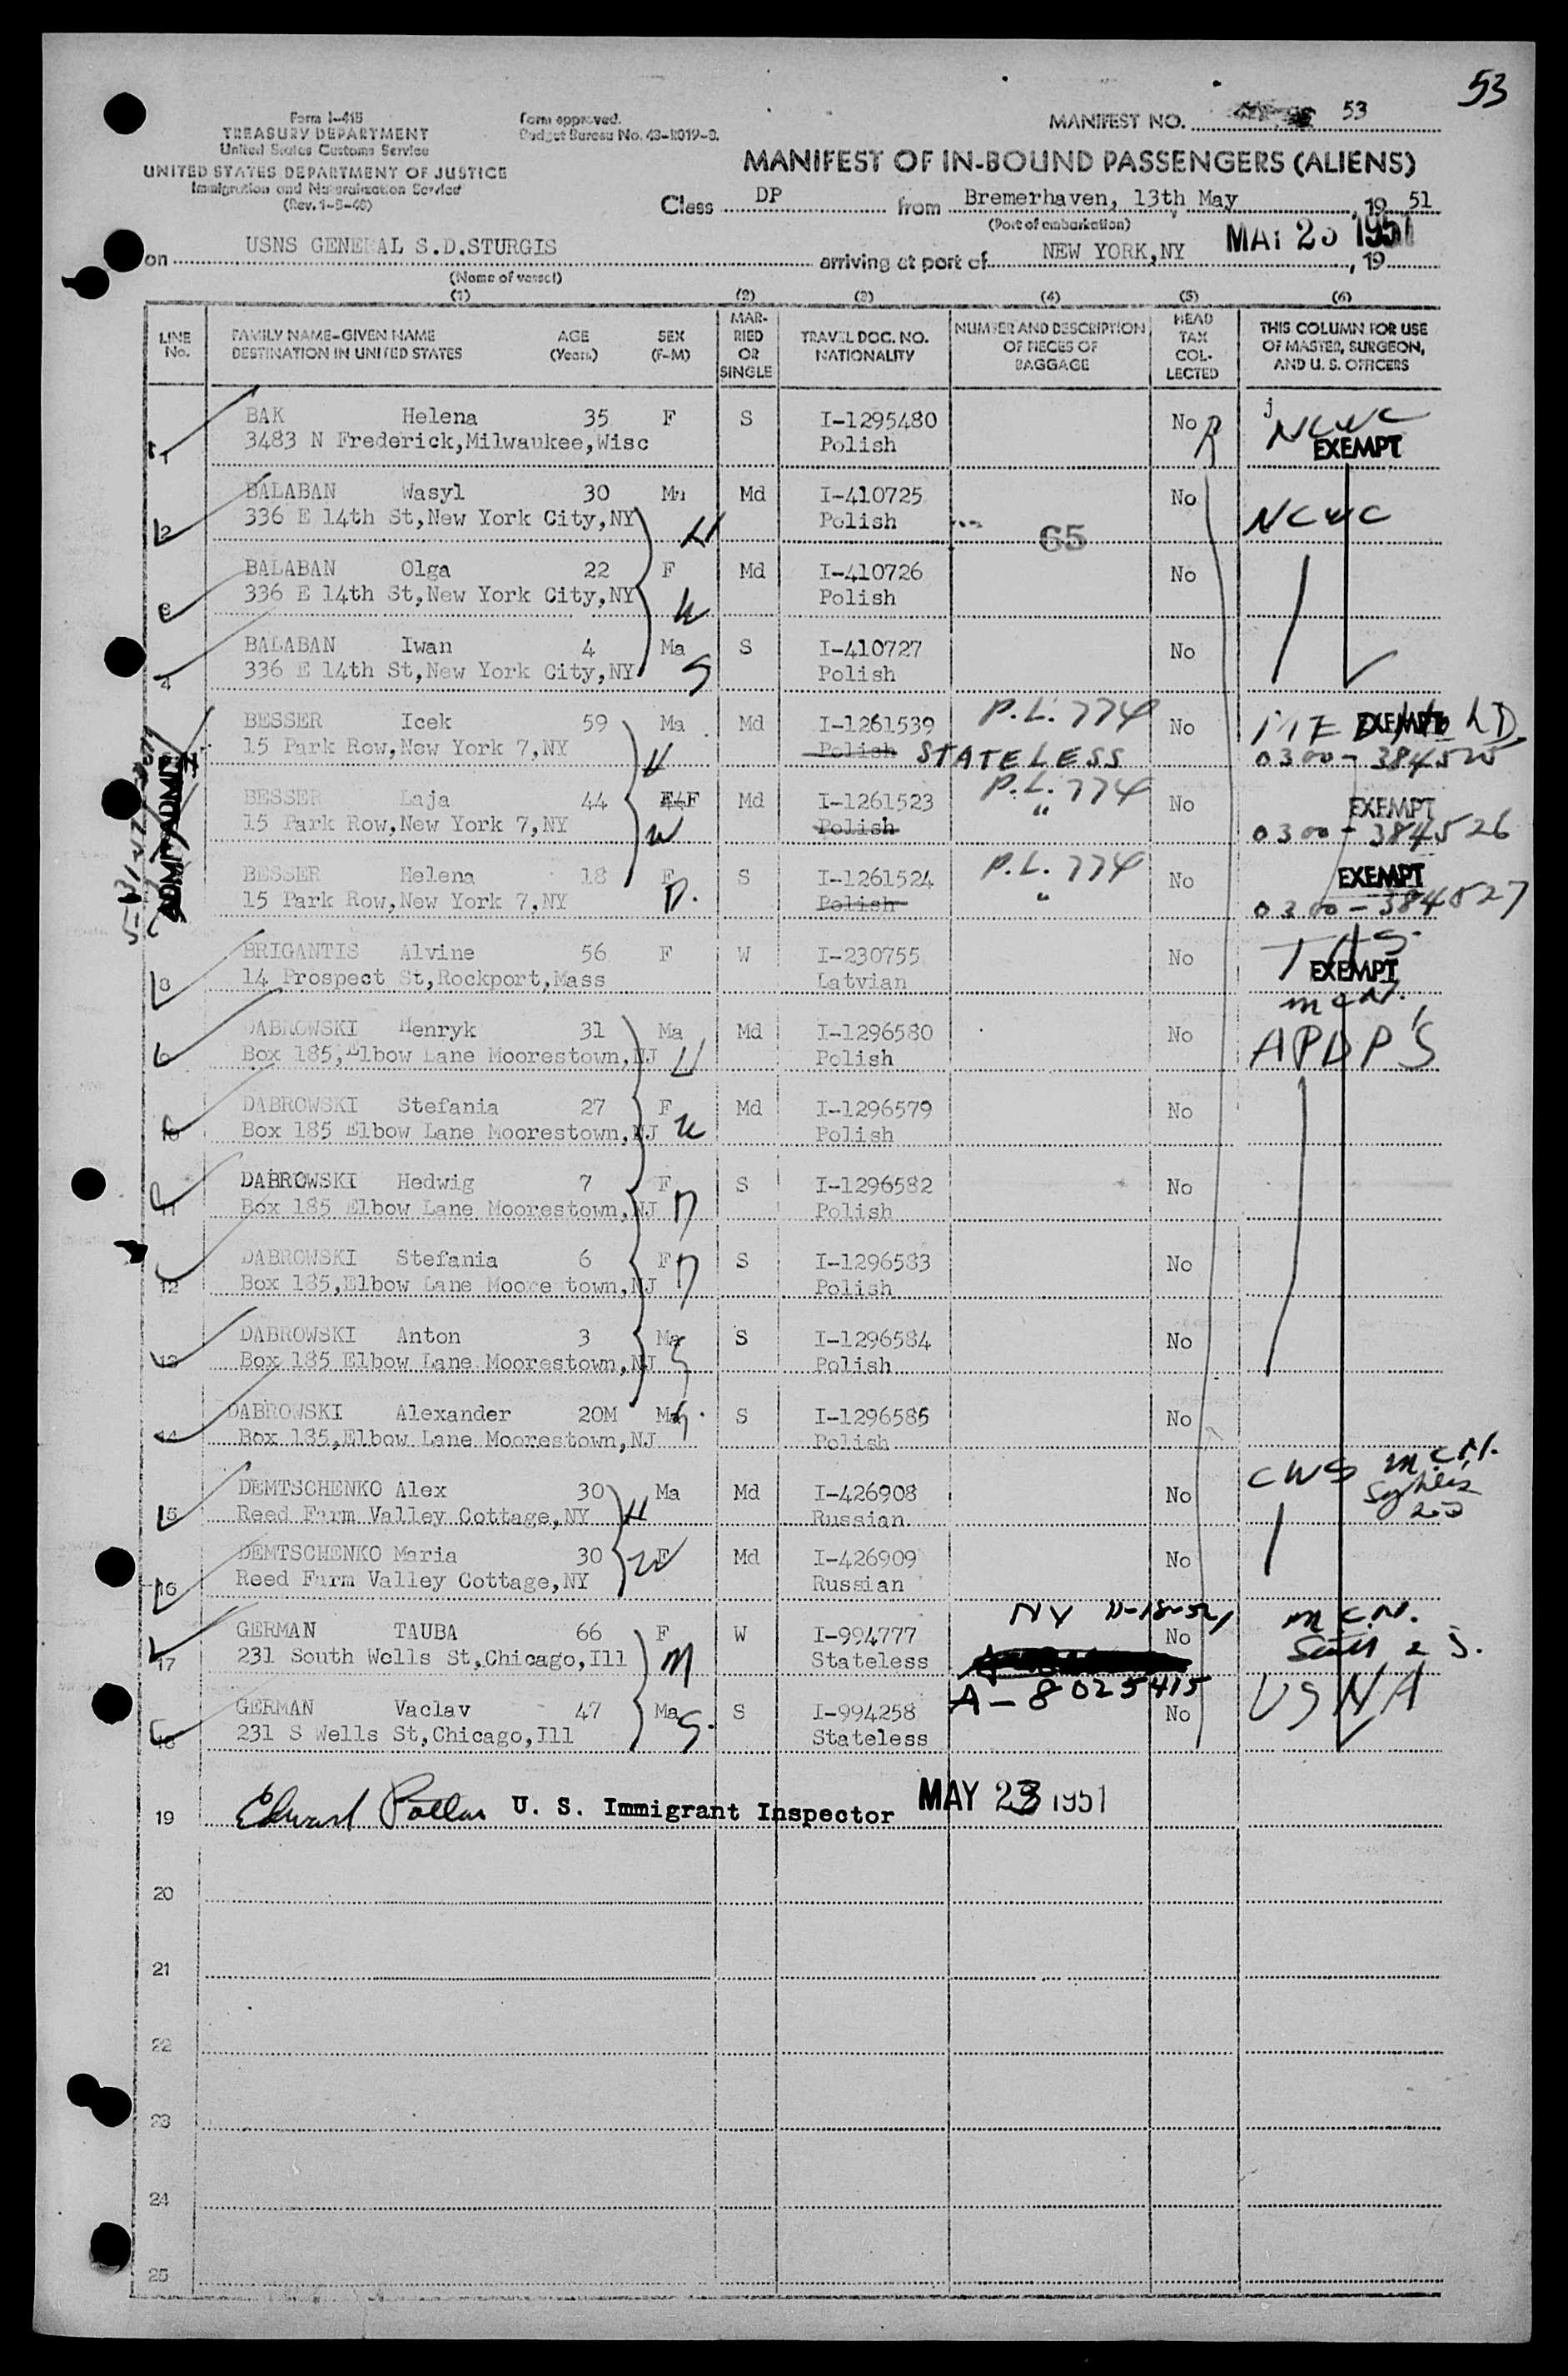 53
Form I-415
TREASURY DEPARTMENT
United States Customs Service
UNITED STATES DEPARTMENT OF JUSTICE
Immigration and Naturalization Service
(Rev. 1-5-48)
Form approved.
Budget Bureau No. 43-R019-3.
MANIFEST NO. 53
MANIFEST OF IN-BOUND PASSENGERS (ALIENS)
Class DP from Bremerhaven, 13th May, 19 51
(Port of embarkation)
on USNS GENERAL S.D.STURGIS arriving at port of NEW YORK,NY MAY 1951, 19
(Name of vessel)
(1) (2) (3) (4) (5) (6)
LINE No. FAMILY NAME-GIVEN NAME DESTINATION IN UNITED STATES AGE (Years) SEX (F-M) MARRIED OR SINGLE TRAVEL DOC. NO. NATIONALITY NUMBER AND DESCRIPTION OF PIECES OF BAGGAGE HEAD TAX COLLECTED THIS COLUMN FOR USE OF MASTER, SURGEON, AND U. S. OFFICERS
1 BAK Helena 35 F S I-1295480 No R j NCWC
3483 N Frederick,Milwaukee,Wisc Polish EXEMPT
2 BALABAN Wasyl 30 Ma Md I-410725 No NCWC
336 E 14th St,New York City,NY H Polish 65
3 BALABAN Olga 22 F Md I-410726 No
336 E 14th St,New York City,NY W Polish
4 BALABAN Iwan 4 Ma S I-410727 No
336 E 14th St,New York City,NY S Polish
BESSER Icek 59 Ma Md I-1261539 P.L. 774 No EXEMPT
15 Park Row,New York 7,NY H Polish STATELESS 0300-384525
BESSER Laja 44 F Md I-1261523 P.L. 774 No EXEMPT
15 Park Row,New York 7,NY W Polish " 0300-384526
BESSER Helena 18 F S I-1261524 P.L. 774 No EXEMPT
15 Park Row,New York 7,NY D. Polish " 0300-384527
8 BRIGANTIS Alvine 56 F W I-230755 No
14 Prospect St,Rockport,Mass Latvian EXEMPT
m c N.
9 DABROWSKI Henryk 31 Ma Md I-1296580 No APDP'S
Box 185,Elbow Lane Moorestown,NJ H Polish
10 DABROWSKI Stefania 27 F Md I-1296579 No
Box 185 Elbow Lane Moorestown,NJ W Polish
11 DABROWSKI Hedwig 7 F S I-1296582 No
Box 185 Elbow Lane Moorestown,NJ D Polish
12 DABROWSKI Stefania 6 F S I-1296583 No
Box 185,Elbow Lane Moore town,NJ D Polish
13 DABROWSKI Anton 3 Ma S I-1296584 No
Box 185 Elbow Lane Moorestown,NJ S Polish
14 DABROWSKI Alexander 20M Ma S. S I-1296585 No
Box 185,Elbow Lane Moorestown,NJ Polish
15 DEMTSCHENKO Alex 30 Ma Md I-426908 No CWS m.c.N.
Reed Farm Valley Cottage,NY H Russian
16 DEMTSCHENKO Maria 30 F Md I-426909 No
Reed Farm Valley Cottage,NY W Russian
NY 11-18-52
17 GERMAN TAUBA 66 F W I-994777 No m c.N.
231 South Wells St,Chicago,Ill M Stateless
A-8025415
18 GERMAN Vaclav 47 Ma S. S I-994258 No USNA
231 S Wells St,Chicago,Ill Stateless
19 Edward U. S. Immigrant Inspector MAY 23 1951
20
21
22
23
24
25